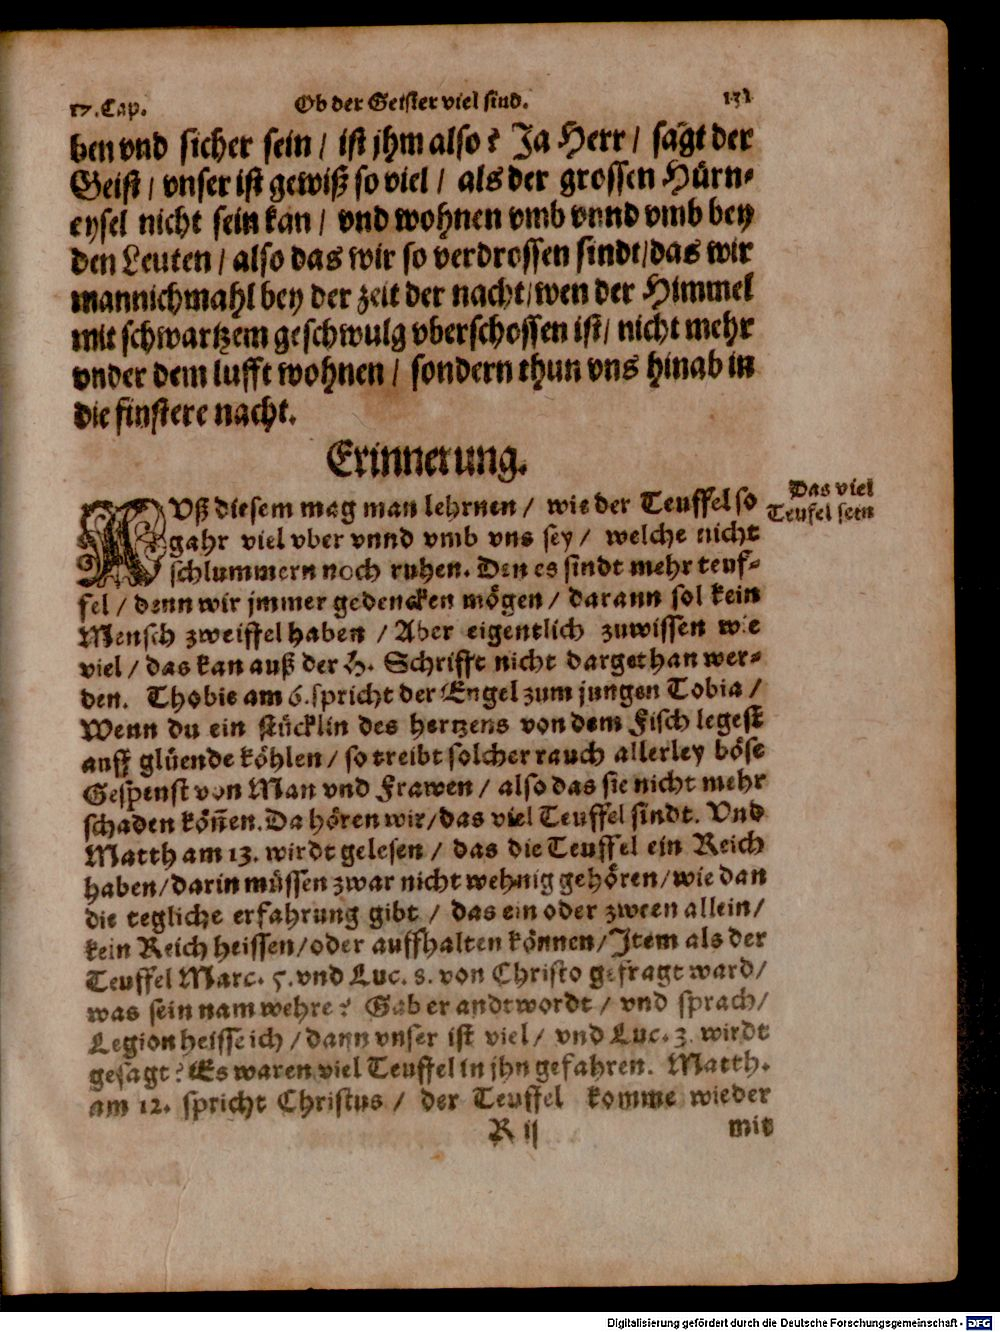 17. Cap. Ob der Geister viel sind. 131
ben vnd sicher sein / ist jhm also? Ja Herr / sagt der
Geist / vnser ist gewiß so viel / als der grossen Hürn-
eysel nicht sein kan / vnd wohnen vmb vnnd vmb bey
den Leuten / also das wir so verdrossen sindt / das wir
mannichmahl bey der zeit der nacht / wen der Himmel
mit schwartzem geschwulg vberschossen ist / nicht mehr
vnder dem lufft wohnen / sondern thun vns hinab in
die finstere nacht.
Erinnerung.
Das viel
Teufel sein
AVß diesem mag man lehrnen / wie der Teuffel so
gahr viel vber vnnd vmb vns sey / welche nicht
schlummern noch ruhen. Den es sindt mehr teuf-
fel / denn wir jmmer gedencken mögen / darann sol kein
Mensch zweiffel haben / Aber eigentlich zuwissen wie
viel / das kan auß der H. Schrifft nicht dargethan wer-
den. Thobie am 6. spricht der Engel zum jungen Tobia /
Wenn du ein stücklin des hertzens von dem Fisch legest
auff glüende köhlen / so treibt solcher rauch allerley böse
Gespenst von Man vnd Frawen / also das sie nicht mehr
schaden koñen. Da hören wir / das viel Teuffel sindt. Vnd
Matth am 13. wirdt gelesen / das die Teuffel ein Reich
haben / darin müssen zwar nicht wehnig gehören / wie dan
die tegliche erfahrung gibt / das ein oder zween allein /
kein Reich heissen / oder auffhalten können / Item als der
Teuffel Marc. 5. vnd Luc. 8. von Christo gefragt ward /
was sein nam wehre? Gab er andtwordt / vnd sprach /
Legion heisse ich / dann vnser ist viel / vnd Luc. 3. wirdt
gesagt: Es waren viel Teuffel in jhn gefahren. Matth.
am 12. spricht Christus / der Teuffel komme wieder
R ij mit
Digitalisierung gefördert durch die Deutsche Forschungsgemeinschaft - DFG